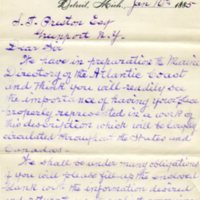 Detroit, Mich. Jan 16th 1885
S. T. Preston Esq
Freeport N.Y.
Dear Sir
We have in preparation the Marine
Directory of the Atlantic Coast
and think you will readily see
the importance of having your
property represented in a work of
this description which will be largely
circulated throughout the States and
Canadas.
We shall be under many obligations
if you will please fill up the enclosed
blank with the information desired
and